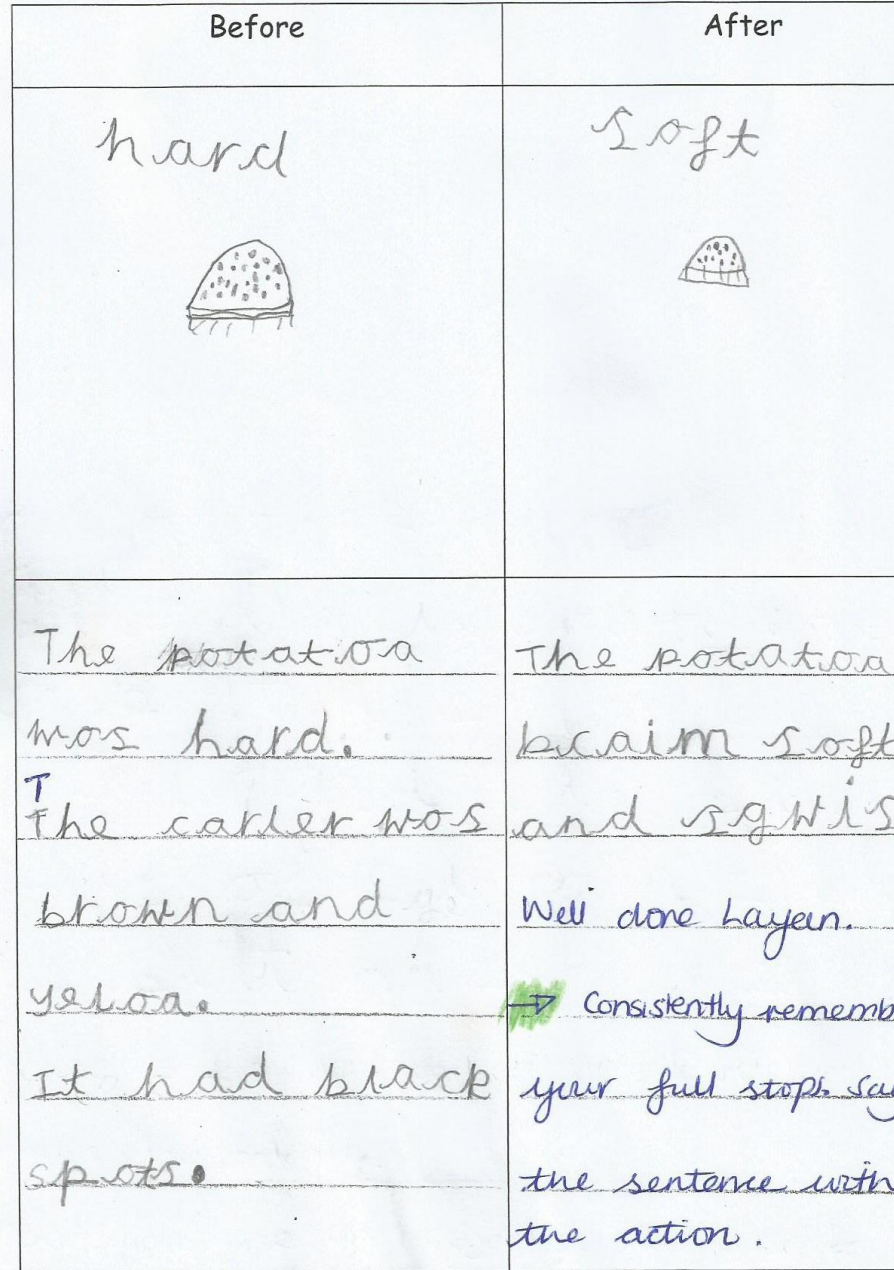 Before
After
hard
soft
The potatoa
wos hard.
T
The carler wos
brown and
yeloa.
It had black
spots.
The potatoa
bcaim soft
and sqwis
Well done Layan.
→ Consistently rememb
your full stops. say
the sentence with
the action.